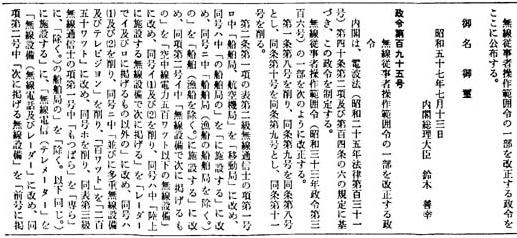 無線従事者操作範囲令の一部を改正する政令を
ここに公布する。
御名御璽
昭和五十七年七月十三日
内閣総理大臣 鈴木 善幸
政令第百九十五号
無線従事者操作範囲令の一部を改正する政
令
内閣は、電波法（昭和二十五年法律第百三十一
号）第四十条第二項及び第百四条の六の規定に基
づき、この政令を制定する。
無線従事者操作範囲令（昭和三十三年政令第三
百六号）の一部を次のように改正する。
第一条第八号を削り、同条第九号を同条第八号
とし、同条第十号を同条第九号とし、同条第十一
号を削る。
第二条第一項の表第二級無線通信士の項第一号
ロ中「船舶局、航空機局」を「移動局」に改め、
同号ハ中「の船舶局の」を「に施設する」に改
め、同号ニ中「船舶局（漁船の船舶局を除く。）
の」を「船舶（漁船を除く。）に施設する」に改
め、同項第二号イ中「無線設備で次に掲げるも
の」を「空中線電力五百ワット以下の無線設備」
に改め、同号イ(1)及び(2)を削り、同号ハ中「陸上
に施設する無線設備で次に掲げる」を「レーダー
でイ及びロに掲げるもの以外の」に改め、同号ハ
(1)及び(2)を削り、同号ニ中「並びに多重無線設備
及びテレビジョン」を削り、「百ワット」を「二百
五十ワット」に改め、同号ホを削り、同表第三級
無線通信士の項第一号中「もつぱら」を「専ら」
に、「除く。）の船舶局の」を「除く。以下同じ。）
に施設する」に、「無線電信（テレメーター」を
「無線設備（無線電話及びレーダー」に改め、同
項第二号中「次に掲げる無線設備」を「前号に掲